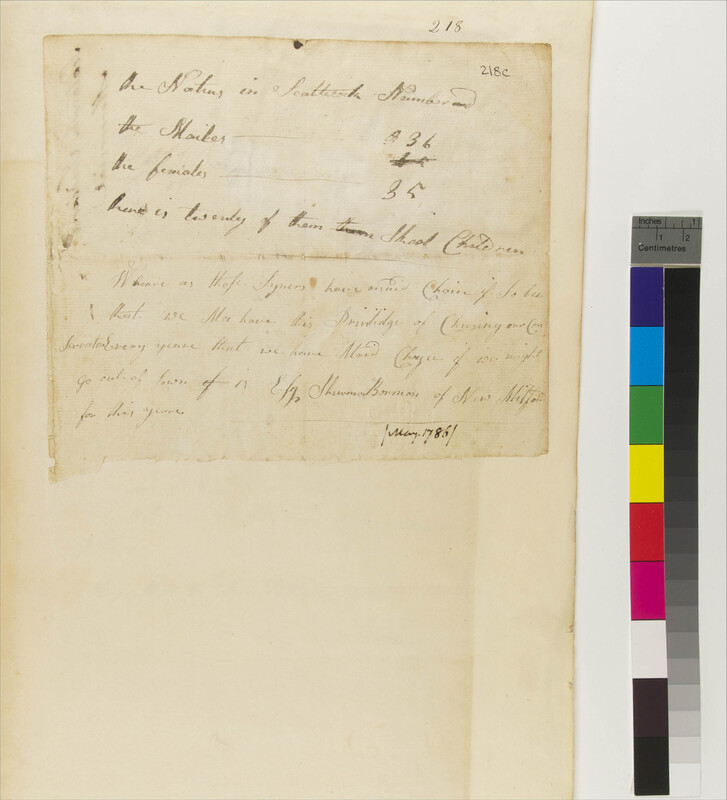 218
218c
the Nativs in Scatticok Number and
the Mailes 36
the females 35
there is twenty of them Skool Children
Wheare as those Syners have maid Choice if So be
that we Ma have this Privlidge of Chusing our Con
Servator Every yeare that we have Maid Choize if we might
go out of town of is Esqr Sherman Borman of New Milford
for this yeare
[May. 1786]